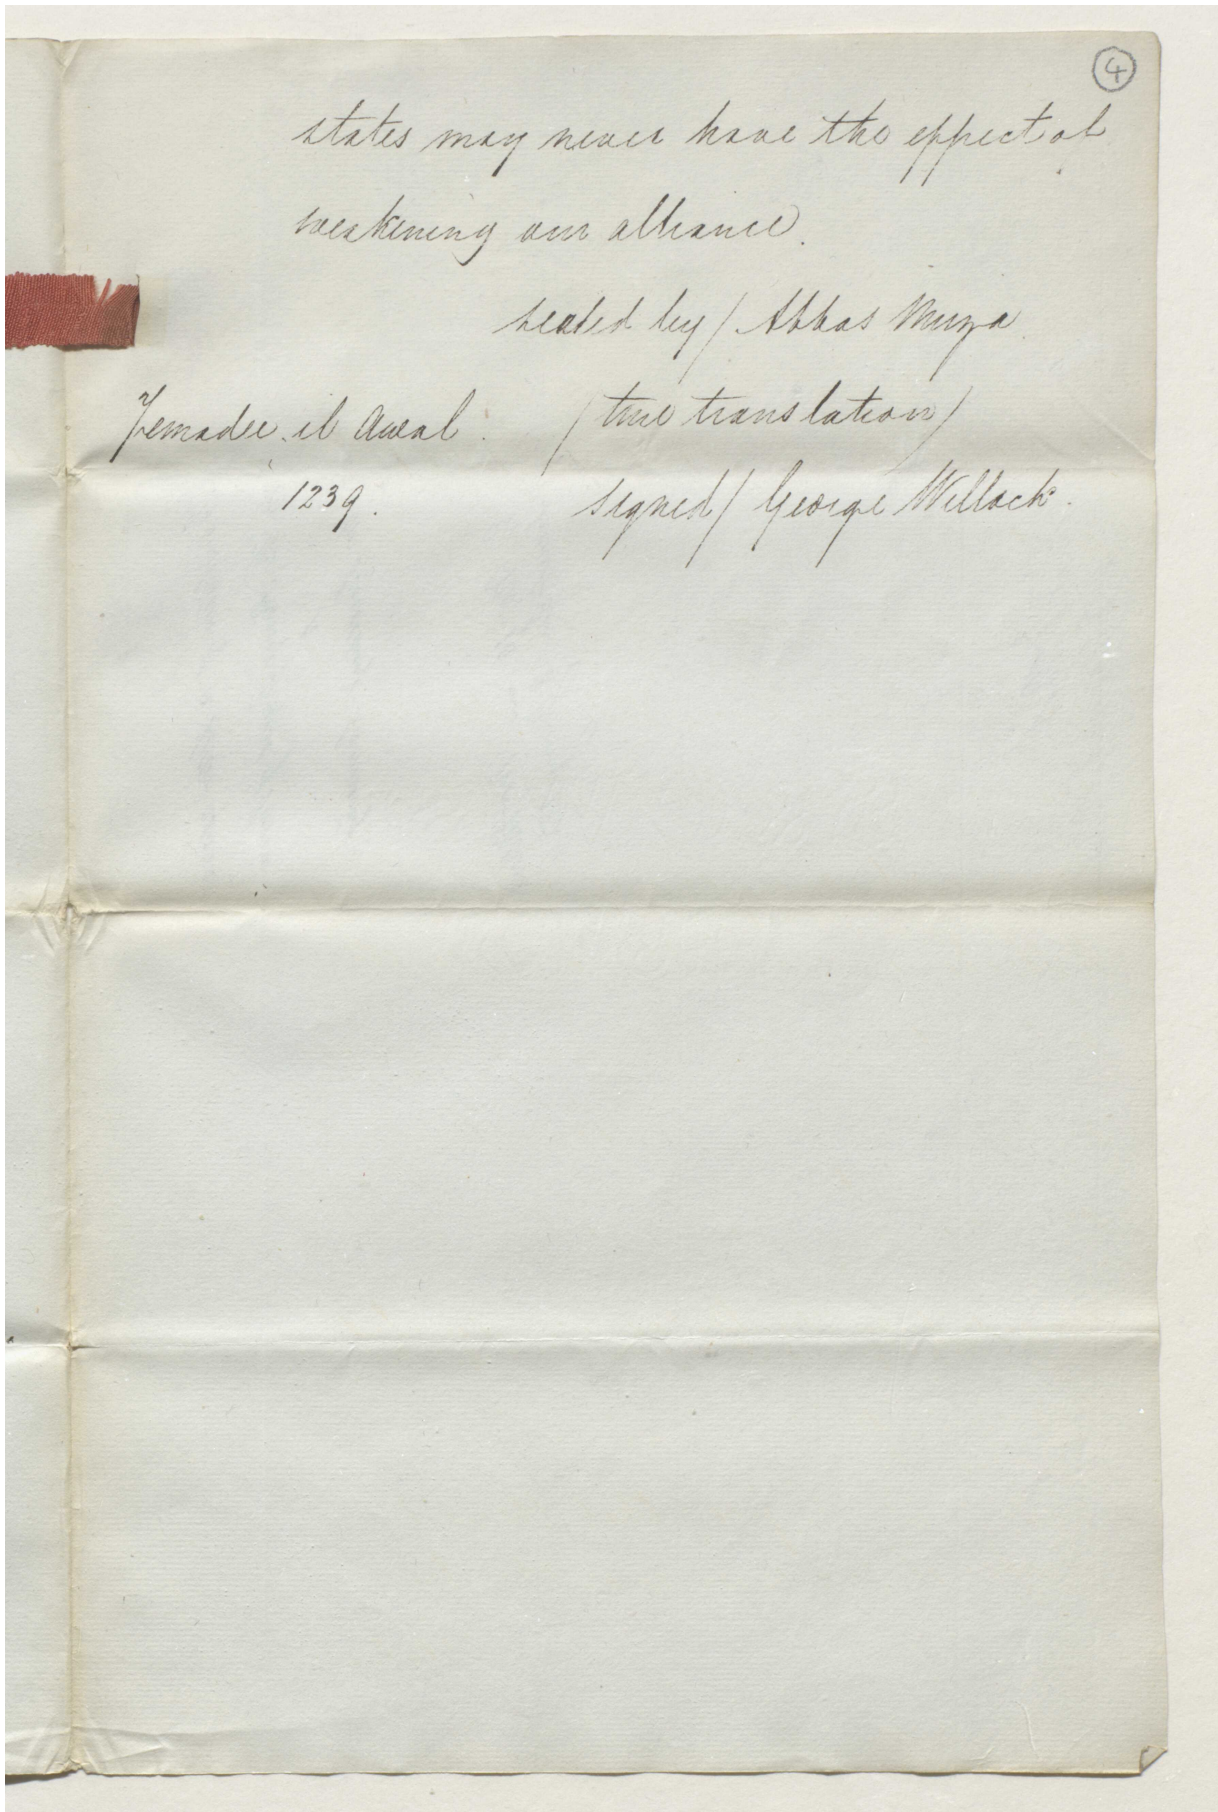 4
states may never have the effect of
weakening our alliance.
sealed by / Abbas Mirza.
Jemadee il Awal. / true translation /
1239. signed / George Willock.